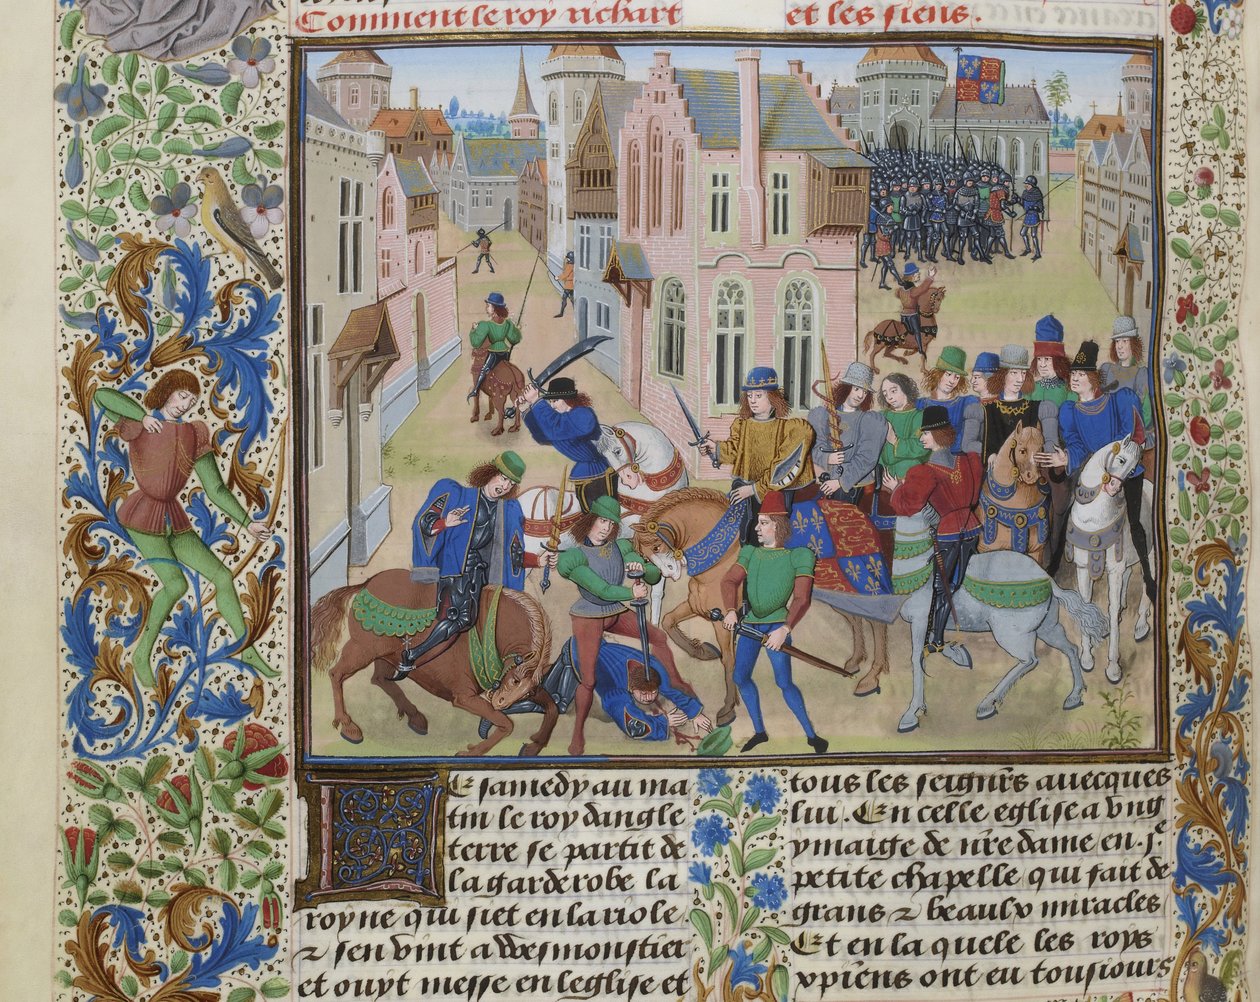 Comment le roy richart et les siens.
Le samedy au ma
tin le roy dangle
terre se partit de
la garderobe la
royne qui siet en la riole
⁊ sen vint a Wesmonstier
et ouyt messe en leglise et
tous les seignrs̄ auecques
lui. En celle eglise a vng
ymaige de nr̄e dame en .j.e
petite chapelle qui fait de
grans ⁊ beaulx miracles
Et en la quele les roys
xp̄iens ont eu tousiours